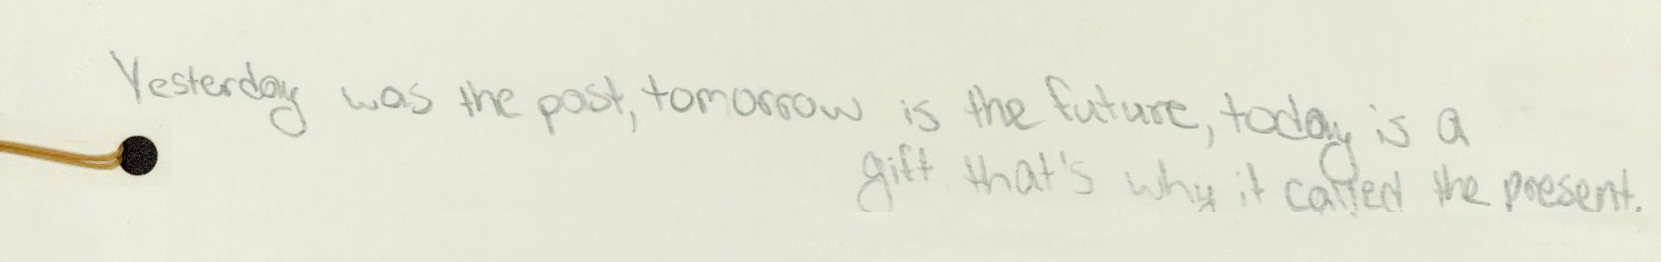 Yesterday was the past, tomorrow is the future, today is a
gift that's why it called the present.